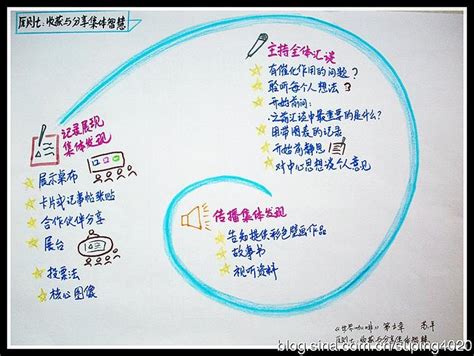 原则七:收获与分享集体智慧
主持全体汇谈
有催化作用的问题?
聆听每个人想法?
开始前问:
之前汇谈中最重要的是什么?
图带图表的记录
开始前静思
对中心思想谈个人意见
记录展现
集体发现
展示桌布
卡片或记事帖张贴
合作伙伴分享
展台
投票法
核心图像
传播集体发现
告知提供彩色壁画作品
故事书
视听资料
《世界咖啡》第七章 苏平
原则七:收获与分享集体智慧
blog.sina.com.cn/suping4020